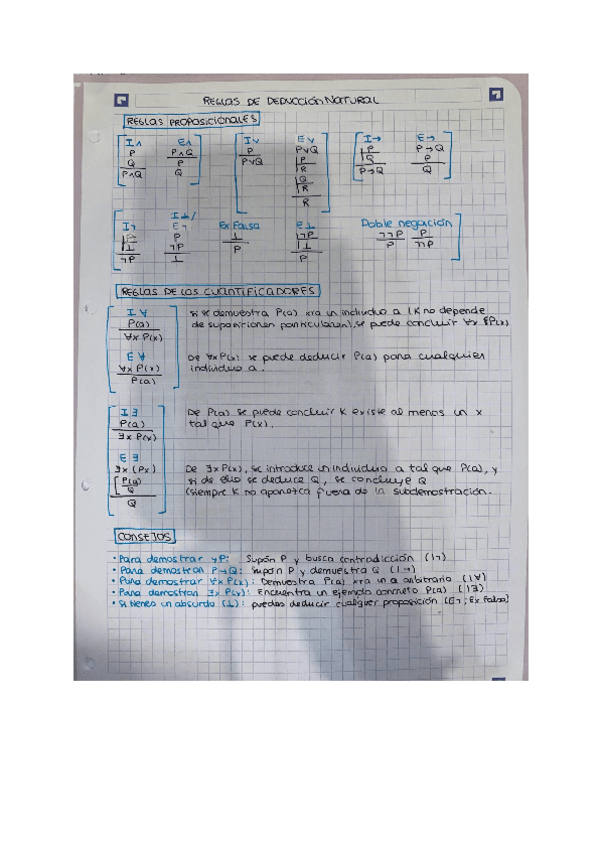 REGLAS DE DEDUCCIÓN NATURAL
REGLAS PROPOSICIONALES
I∧ E∧ I∨ E∨ I→ E→
P P∧Q P P∨Q P P→Q
Q P P∨Q P Q P
P∧Q Q R P→Q Q
Q
R
R
I⊥/
I¬ E¬ Ex Falsa E⊥ Doble negación
P ⊥ ¬P ¬¬P P
⊥ ¬P P ⊥ P ¬¬P
¬P ⊥ P
REGLAS DE LOS CUANTIFICADORES
I∀
P(a)
∀x P(x)
Si se demuestra P(a) xra un individuo a (K no depende
de suposiciones particulares), se puede concluir ∀x P(x)
E∀
∀x P(x)
P(a)
De ∀xP(x) se puede deducir P(a) para cualquier
individuo a.
I∃
P(a)
∃x P(x)
De P(a) se puede concluir K existe al menos un x
tal que P(x).
E∃
∃x (Px)
P(a)
Q
Q
De ∃xP(x), se introduce un individuo a tal que P(a), y
si de ello se deduce Q, se concluye Q
(siempre K no aparezca fuera de la subdemostración.
CONSEJOS
• Para demostrar ¬P: Supón P y busca contradicción (I¬)
• Para demostrar P→Q: Supón P y demuestra Q (I→)
• Para demostrar ∀x P(x): Demuestra P(a) xra un a arbitrario (I∀)
• Para demostrar ∃x P(x): Encuentra un ejemplo concreto P(a) (I∃)
• Si tienes un absurdo (⊥): puedes deducir cualquier proposición (E¬; Ex Falsa)